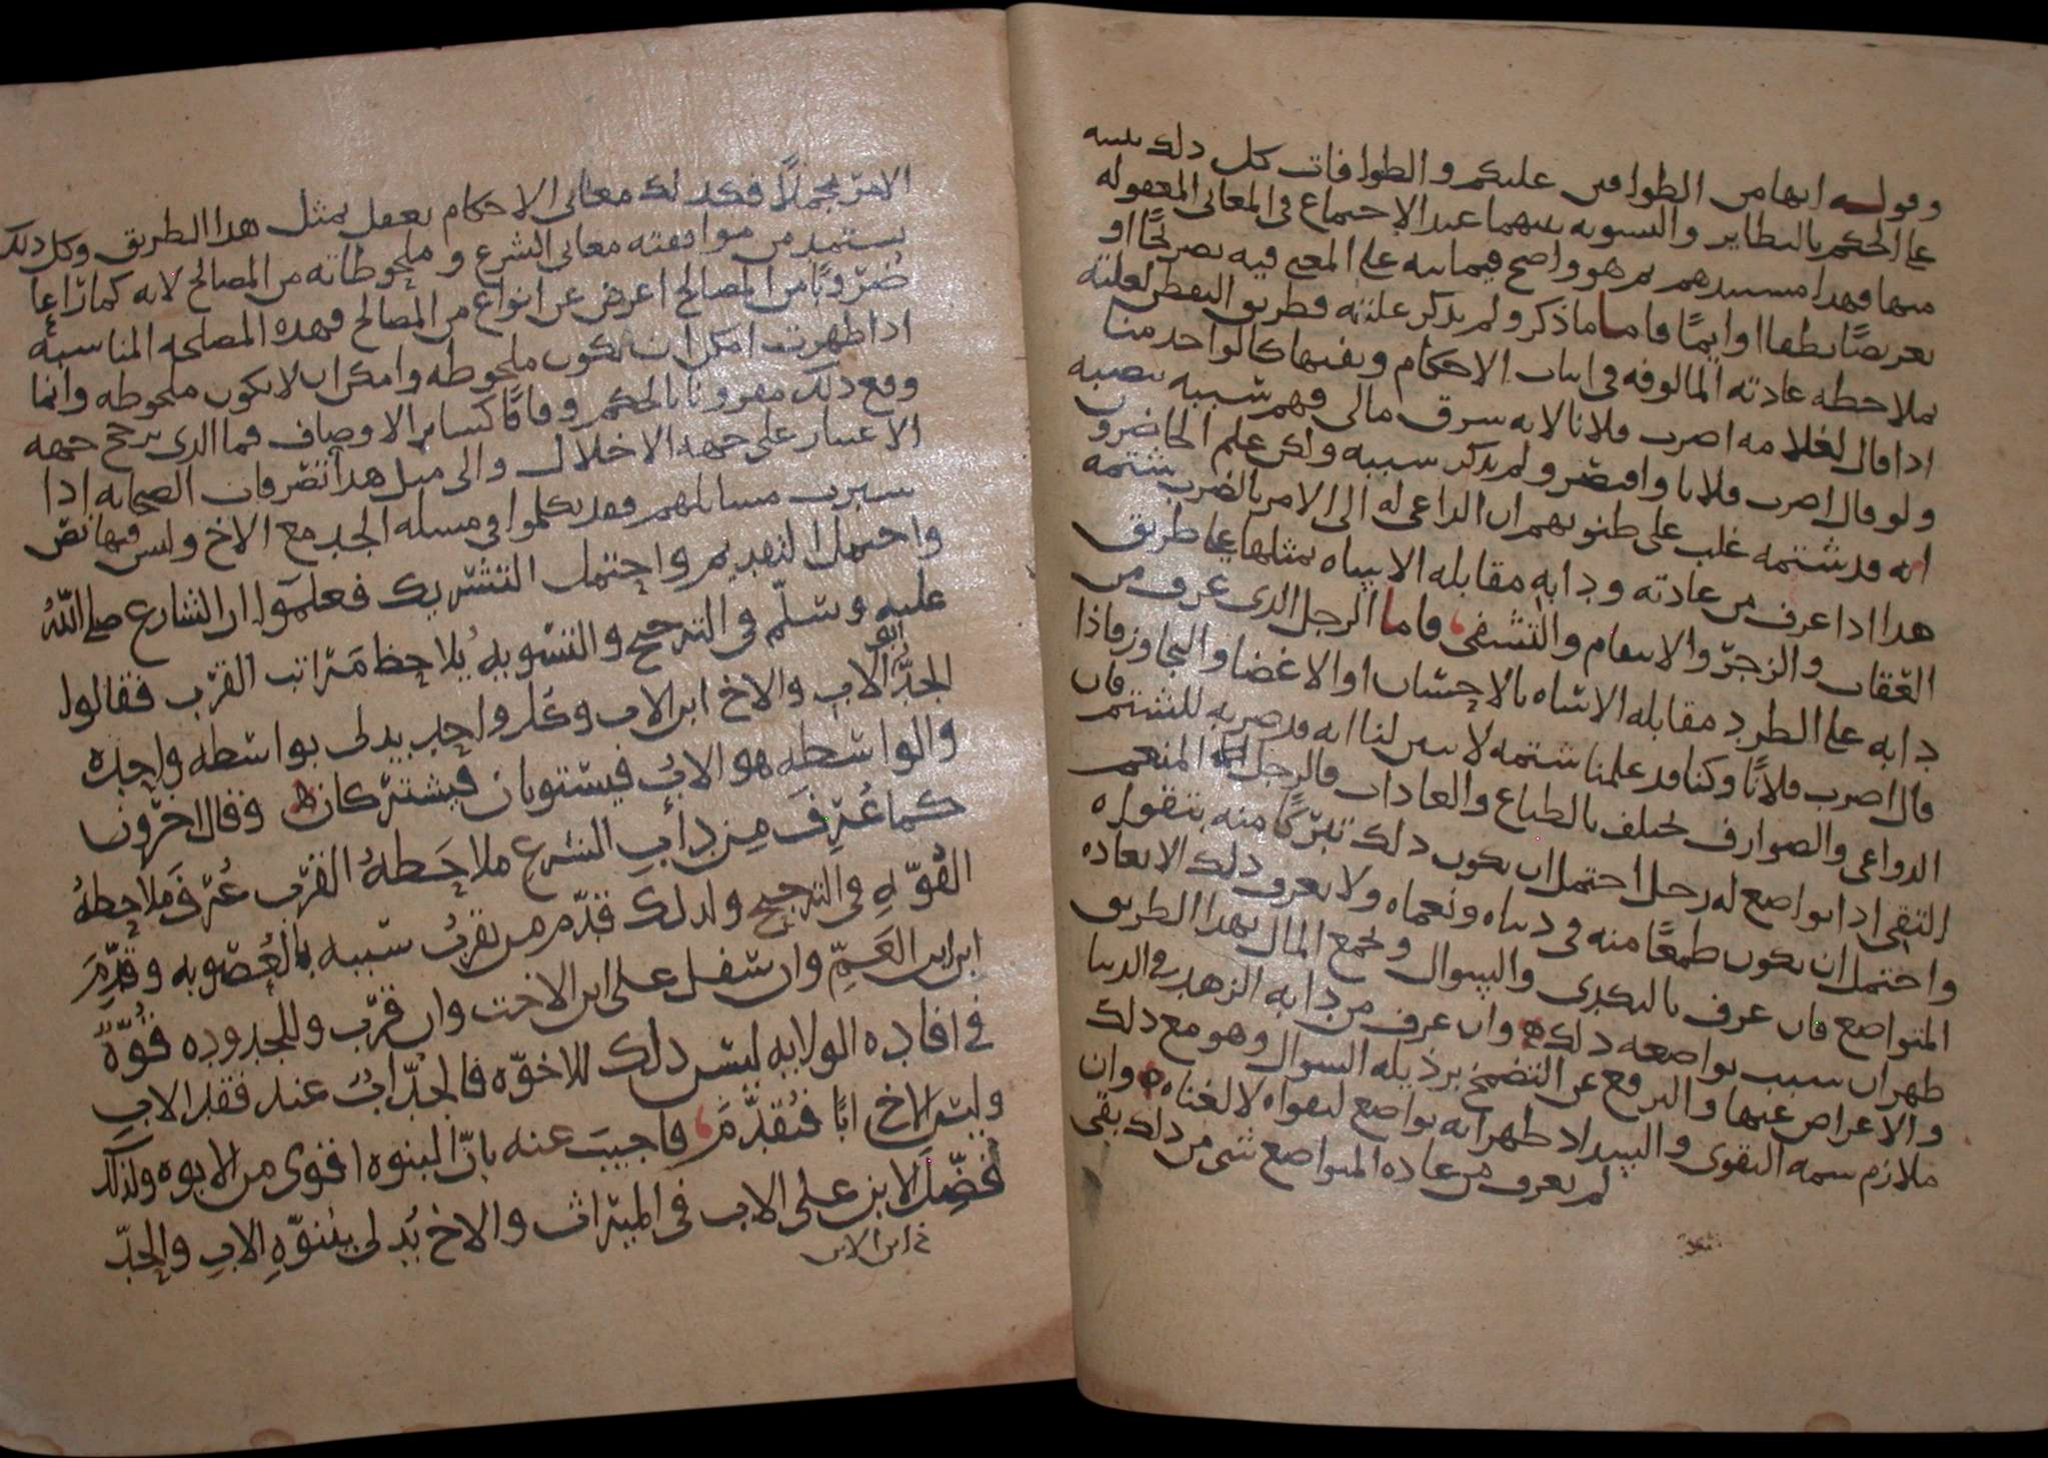 وقوله انها من الطوافين عليكم والطوافات كل ذلك تنبيه
على الحكم بالنظاير والتسويه بينهما عند الاجتماع في المعاني المعقوله
منها فهذا مستندهم ثم هو واضح فيما نبه على المعنى فيه تصريحًا او
تعريضًا نطقا او ايمًا فاما ما ذكر ولم يذكر علته فطريق التفطن لعلته
بملاحظه عادته المالوفه في اثبات الاحكام ونفيها كالواحد منا
اذا قال لغلامه اضرب فلانا لانه سرق مالي فهم سببه بنصبه
ولو قال اضرب فلانا واقتصر ولم يذكر سببه ولكن علم الحاضرون
انه قد شتمه غلب على ظنونهم ان الداعي له الى الامر بالضرب شتمه
هذا اذا عرف من عادته ودابه مقابله الاساه بمثلها على طريق
العقاب والزجر والانتقام والتشفي فاما الرجل الذي عرف من
دابه على الطرد مقابله الاساه بالاحسان او الاغضا والتجاوز فاذا
قال اضرب فلانًا وكنا قد علمنا شتمه لا يتبين لنا انه قد ضربه للشتم فان
الدواعي والصوارف تختلف بالطباع والعادات فالرجل المنعم
التقي اذا تواضع له رجل احتمل ان يكون ذلك تبركًا منه بتقواه
واحتمل ان يكون طمعًا منه في دنياه ونعماه ولا يعرف ذلك الا بعاده
المتواضع فان عرف بالتكدي والسوال وجمع المال بهذا الطريق
ظهر ان سبب تواضعه ذلك وان عرف من دابه الزهد في الدنيا
والاعراض عنها والترفع عن التضمخ برذيله السوال وهو مع ذلك
ملازم سمه التقوى والسداد ظهر انه تواضع لتقواه لا لغناه وان
لم يعرف من عاده المتواضع شي من ذلك بقي
الامر مجملًا فكذلك معاني الاحكام تعقل بمثل هذا الطريق وكل ذلك
يستمد من موافقته معاني الشرع وملحوظاته من المصالح لانه كما راعا
ضروبًا من المصالح اعرض عن انواع من المصالح فهذه المصلحه المناسبه
اذا ظهرت امكن ان تكون ملحوظه وامكن ان لا يكون ملحوظه وانما
وقع ذلك مقرونا بالحكم وفاقًا كساير الاوصاف فما الذي يرجح جهه
الاعتبار على جهه الاخلال والى مثل هذا تصرفات الصحابه اذا
سبرت مسايلهم فقد تكلموا في مسله الجد مع الاخ وليس فيها نص
واحتمل التقديم واحتمل التشريك فعلموا ان الشارع صلى الله
عليه وسلم في الترجيح والتسويه يلاحظ مراتب القرب فقالوا
الجد ابو الاب والاخ ابن الاب وكل واحد يدلى بواسطه واحده
والواسطه هو الاب فيستويان فيشتركان وقال اخرون
كما عرف من دأب الشرع ملاحظه القرب عرف ملاحظه
القوه في الترجيح ولذلك قدم من تقرب سببه بالعصوبه وقدم
ابن ابن العم وان سفل على ابن الاخت وان قرب وللجدوده قوه
في افاده الولايه ليس ذلك للاخوه فالجد اب عند فقد الاب
وليس الاخ ابًا فتقدم فاجيب عنه بان البنوه اقوى من الابوه ولذلك
فضل الابن على الاب في الميراث والاخ يدلى ببنوه الاب والجد
خ ابن الابن